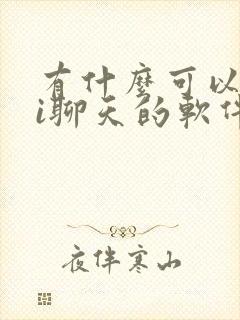 有什麼可以
i聊天的軟件
夜伴寒山